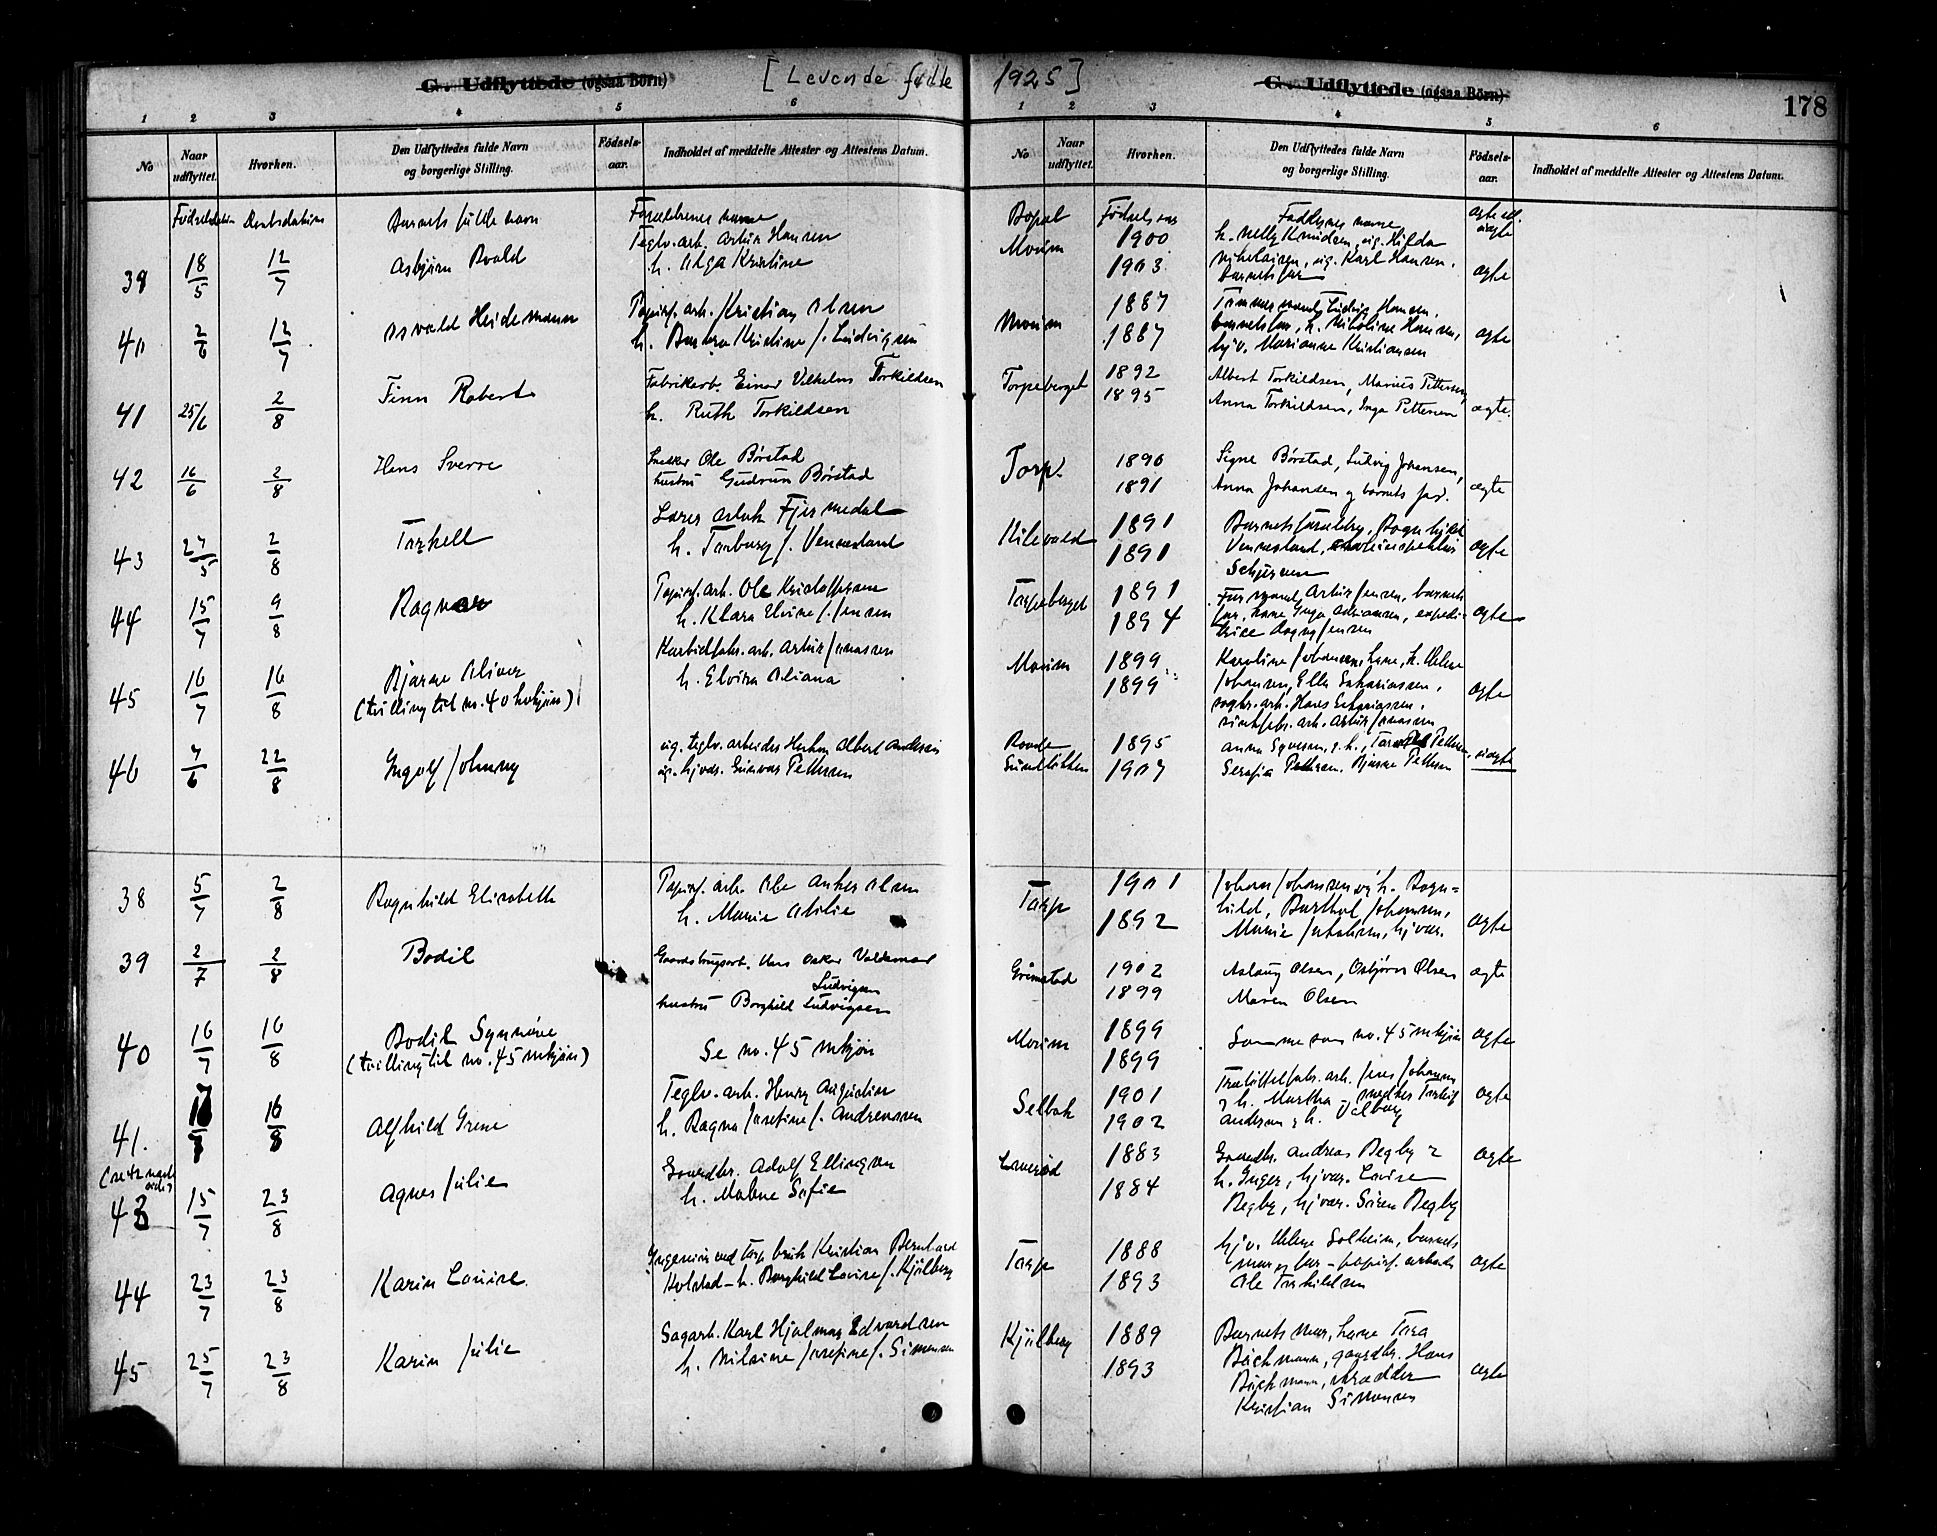 G. Udflyttede (ogsaa Börn) [Levende fødte
1 2 3 4 5 6
No Naar udflyttet. Hvorhen. Den Udflyttedes fulde Navn og borgerlige Stilling. Fødsels-aar. Indholdet af meddelte Attester og Attestens Datum.
Barnets fulde navn Forældrenes navne
39 18/5 12/7 Asbjørn Roald Teglv.arb. Artur Hansen
h. Olga Kristine
40 2/6 12/7 Osvald Heidemann Papirf. arb. Kristian Olsen
h. Barbra Kristine f. Ludvigsen
41 25/6 2/8 Finn Robert Fabrikarb. Einar Vilhelm Torkildsen
h. Ruth Torkildsen
42 16/6 2/8 Hans Sverre Snekker Ole Børstad
hustru Gudrun Børstad
43 27/5 2/8 Torkell Lærer Aslak Fjermedal
h. Torborg f. Vennesland
44 15/7 9/8 Ragnar Papirf. arb. Ole Kristoffersen
h. Klara Elvine f. Jensen
45 16/7 16/8 Bjarne Oliver Karbidfabr. arb. Artur Jonassen
(tvilling til no. 40 kvkjøn) h. Elvira Oliana
46 7/6 22/8 Ingolf Johnny ug. teglv. arbeider Herbert Albert Andersen
ug. hjvær. Gunvor Pettersen
38 5/7 2/8 Ragnhild Elisabeth Papirf. arb. Ole Anker Olsen
h. Marie Otilie
39 2/7 2/8 Bodil Gaardsbrugsarb. Hans Oskar Valdemar
Ludvigsen
hustru Borghild Ludvigsen
40 16/7 16/8 Bodil Synnøve Se no. 45 mkjøn
(tvilling til no. 45 mkjøn)
41. 16/8 Alfhild Irene Teglv. arb. Henry Augustin
h. Ragna Josefine f. Andreassen
43 15/7 23/8 Agnes Julie Gaardbr. Adolf Ellingsen
h. Malene Sofie
44 23/7 23/8 Karin Louise. Ingeniør ved Torp bruk Kristian Bernhard
Holstad – h. Borghild Lovise f. Kjølberg
45 25/7 23/8 Karin Julie Sagarb. Karl Hjalmar Edvardsen
h. Nilsine Josefine f. Simensen
1925] G. Udflyttede (ogsaa Börn) 178
1 2 3 4 5 6
No Naar udflyttet. Hvorhen. Den Udflyttedes fulde Navn og borgerlige Stilling. Fødsels-aar. Indholdet af meddelte Attester og Attestens Datum.
Bopæl Fødselsaar Faddernes navne ægte ell. uægte
Moum 1900 h. Nelly Knudsen, ug. Hilda
1903 Nikolaisen, ug. Karl Hansen, ægte
barnets far
Moum 1887 Tømmermand Ludvig Hansen,
1887 barnets far, h. Nikoline Hansen, ægte
hjv. Marianne Kristiansen
Torpeberget 1892 Albert Torkildsen, Marius Pettersen,
1895 Anna Torkildsen, Inga Pettersen ægte.
Torp. 1890 Signe Børstad, Ludvig Johansen,
1891 Anna Johansen og barnets far. ægte
Kilevold 1891 Barnets forældre, Ragnhild
1891 Vennesland, ægte
Torpeberget 1891 Formand Artur Jensen, barnets
1894 far, Inga Adriansen, expedi- ægte
trice Dagny Jensen
Moum 1899 Karoline Johansen, h. Helene
1899 Johansen, Elly Sakariassen, ægte
arb. Hans Sakariassen,
arb. Artur Jonassen
Roald 1895 Anna Syversen, g. h., Pettersen,
1907 Serafia Pettersen, Bjarne Pettersen uægte
Torp 1901 Johan Johansen og h. Ragn-
1892 hild, Barthol Johansen, ægte
Marie Jakobsen, hjvær.
Grimstad 1902 Aslaug Olsen, Osbjørn Olsen ægte
1899 Maren Olsen
Moum 1899 Samme som no. 45 mkjøn ægte
1899
Selbak 1901 arb. Jens Johansen
1902 h. Martha – snedker ægte
Andersen & h. Valborg
1883 Gaardbr. Andreas Begby & ægte
1884 h. Inger, hjvær. Lovise
Begby, hjvær. Søren Begby
Torp 1888 hjv. Helene Solheim, barnets
1893 mor og far – papirf. arbeider ægte
Ole Torkildsen
Kjølberg 1889 Barnets mor, Tora
1893 Bückmann, gaardbr. Hans ægte
Bückmann, skrædder
Kristian Simensen